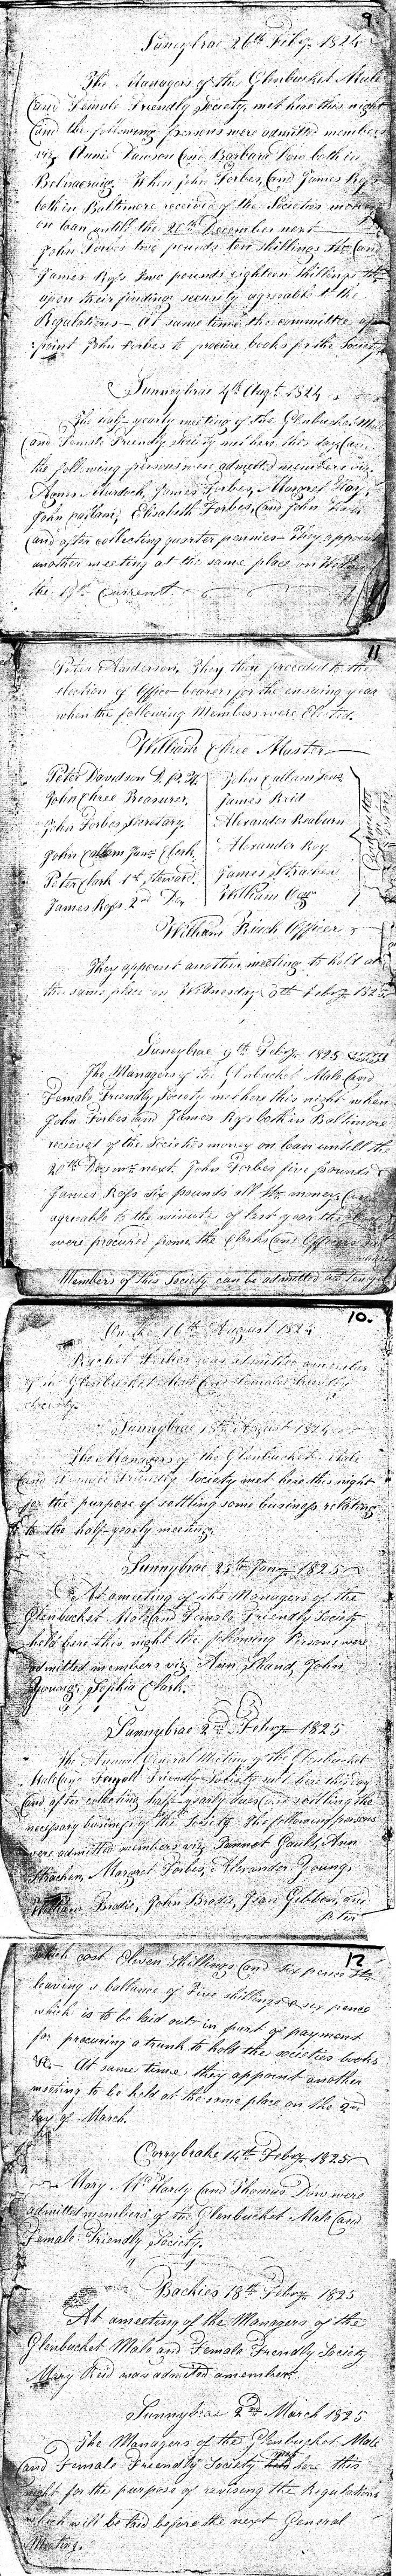 9.
Sunnybrae 26th Feby. 1824
The Managers of the Glenbucket Male
and Female Friendly Society, met here this night
and the following persons were admitted members
viz Annie Dawson and Barbara Dow both in
Belnacraig. When John Forbes, and James Ross
both in Baltimore received of the Societies money
on loan untill the 20th December next
John Forbes five pounds ten shillings Str. and
James Ross two pounds eighteen shillings Str.
upon their finding security agreeable to the
Regulations — At same time the committee ap
:point John Forbes to procure books for the Society
Sunnybrae 4th Augt. 1824
The half-yearly meeting of the Glenbucket Male
and Female Friendly society met here this day and
the following persons were admitted members viz
Agnes Murdoch, James Forbes, Margret Hay,
John Forbes, and John
and after collecting quarter pennies — They appoint
another meeting at the same place on
the current.
11
Peter Anderson. They then proceeded to the
election of Office-bearers for the ensuing year
when the following Members were Elected.
William Chree Master
Peter Davidson John Cullam Senr.
John Chree Treasurer, James Reid
John Forbes Secretary. Alexander Reaburn
John Cullam Junr. Clerk. Alexander Roy.
Peter Clark 1st Steward. James Strachan
James Ross 2nd Do. William
Committee
William Riach Officer
They appoint another meeting to hold at
the same place on Wednesday 9th Feby 1825
Sunnybrae 9th Feby. 1825
The Managers of the Glenbucket Male and
Female Friendly Society met here this night when
John Forbes and James Ross both in Baltimore
recieved of the Societies money on loan untill the
20th Decmr. next. John Forbes five pounds &
James Ross six pounds all Str. money and
agreeable to the minutes of last year the
were procured from the Clerks and Officers
Members of this Society can be admitted as
10.
On the 16th August 1824
Rachel Forbes was admitted a member
of the Glenbucket Male and Female Friendly
Society.
Sunnybrae 18th August 1824
The Managers of the Glenbucket Male
and Female Friendly Society met here this night
for the purpose of settling some business relating
to the half-yearly meeting.
Sunnybrae 25th Jany. 1825
At a meeting of the Managers of the
Glenbucket Male and Female Friendly Society
held here this night the following Persons were
admitted members viz Ann Shand, John
Young, Sophia Clark.
Sunnybrae 2nd Feby 1825
The Annual General Meeting of the Glenbucket
Male and Female Friendly Society met here this day
and after collecting half-yearly dues and settling the
necessary business of the Society. The following persons
were admitted members viz Jannet Gauld, Ann
Strachan, Margret Forbes, Alexander Young,
William Brodie, John Brodie, Jean Gibbon, and
Peter
12
which cost Eleven Shillings and six pence Str.
leaving a ballance of Five shillings & six pence
which is to be laid out in part of payment
for procuring a trunk to hold the societies books
&c. — At same time they appoint another
meeting to be held at the same place on the 2nd
day of March.
Corrybrake 14th Feby. 1825
Mary McHardy and Thomas Dow were
admitted members of the Glenbucket Male and
Female Friendly Society.
Backies 18th Feby. 1825
At a meeting of the Managers of the
Glenbucket Male and Female Friendly Society
Mary Reid was admitted a member.
Sunnybrae 2nd March 1825
The Managers of the Glenbucket Male
and Female Friendly Society met here this
night for the purpose of revising the Regulations
which will be laid before the next General
Meeting.